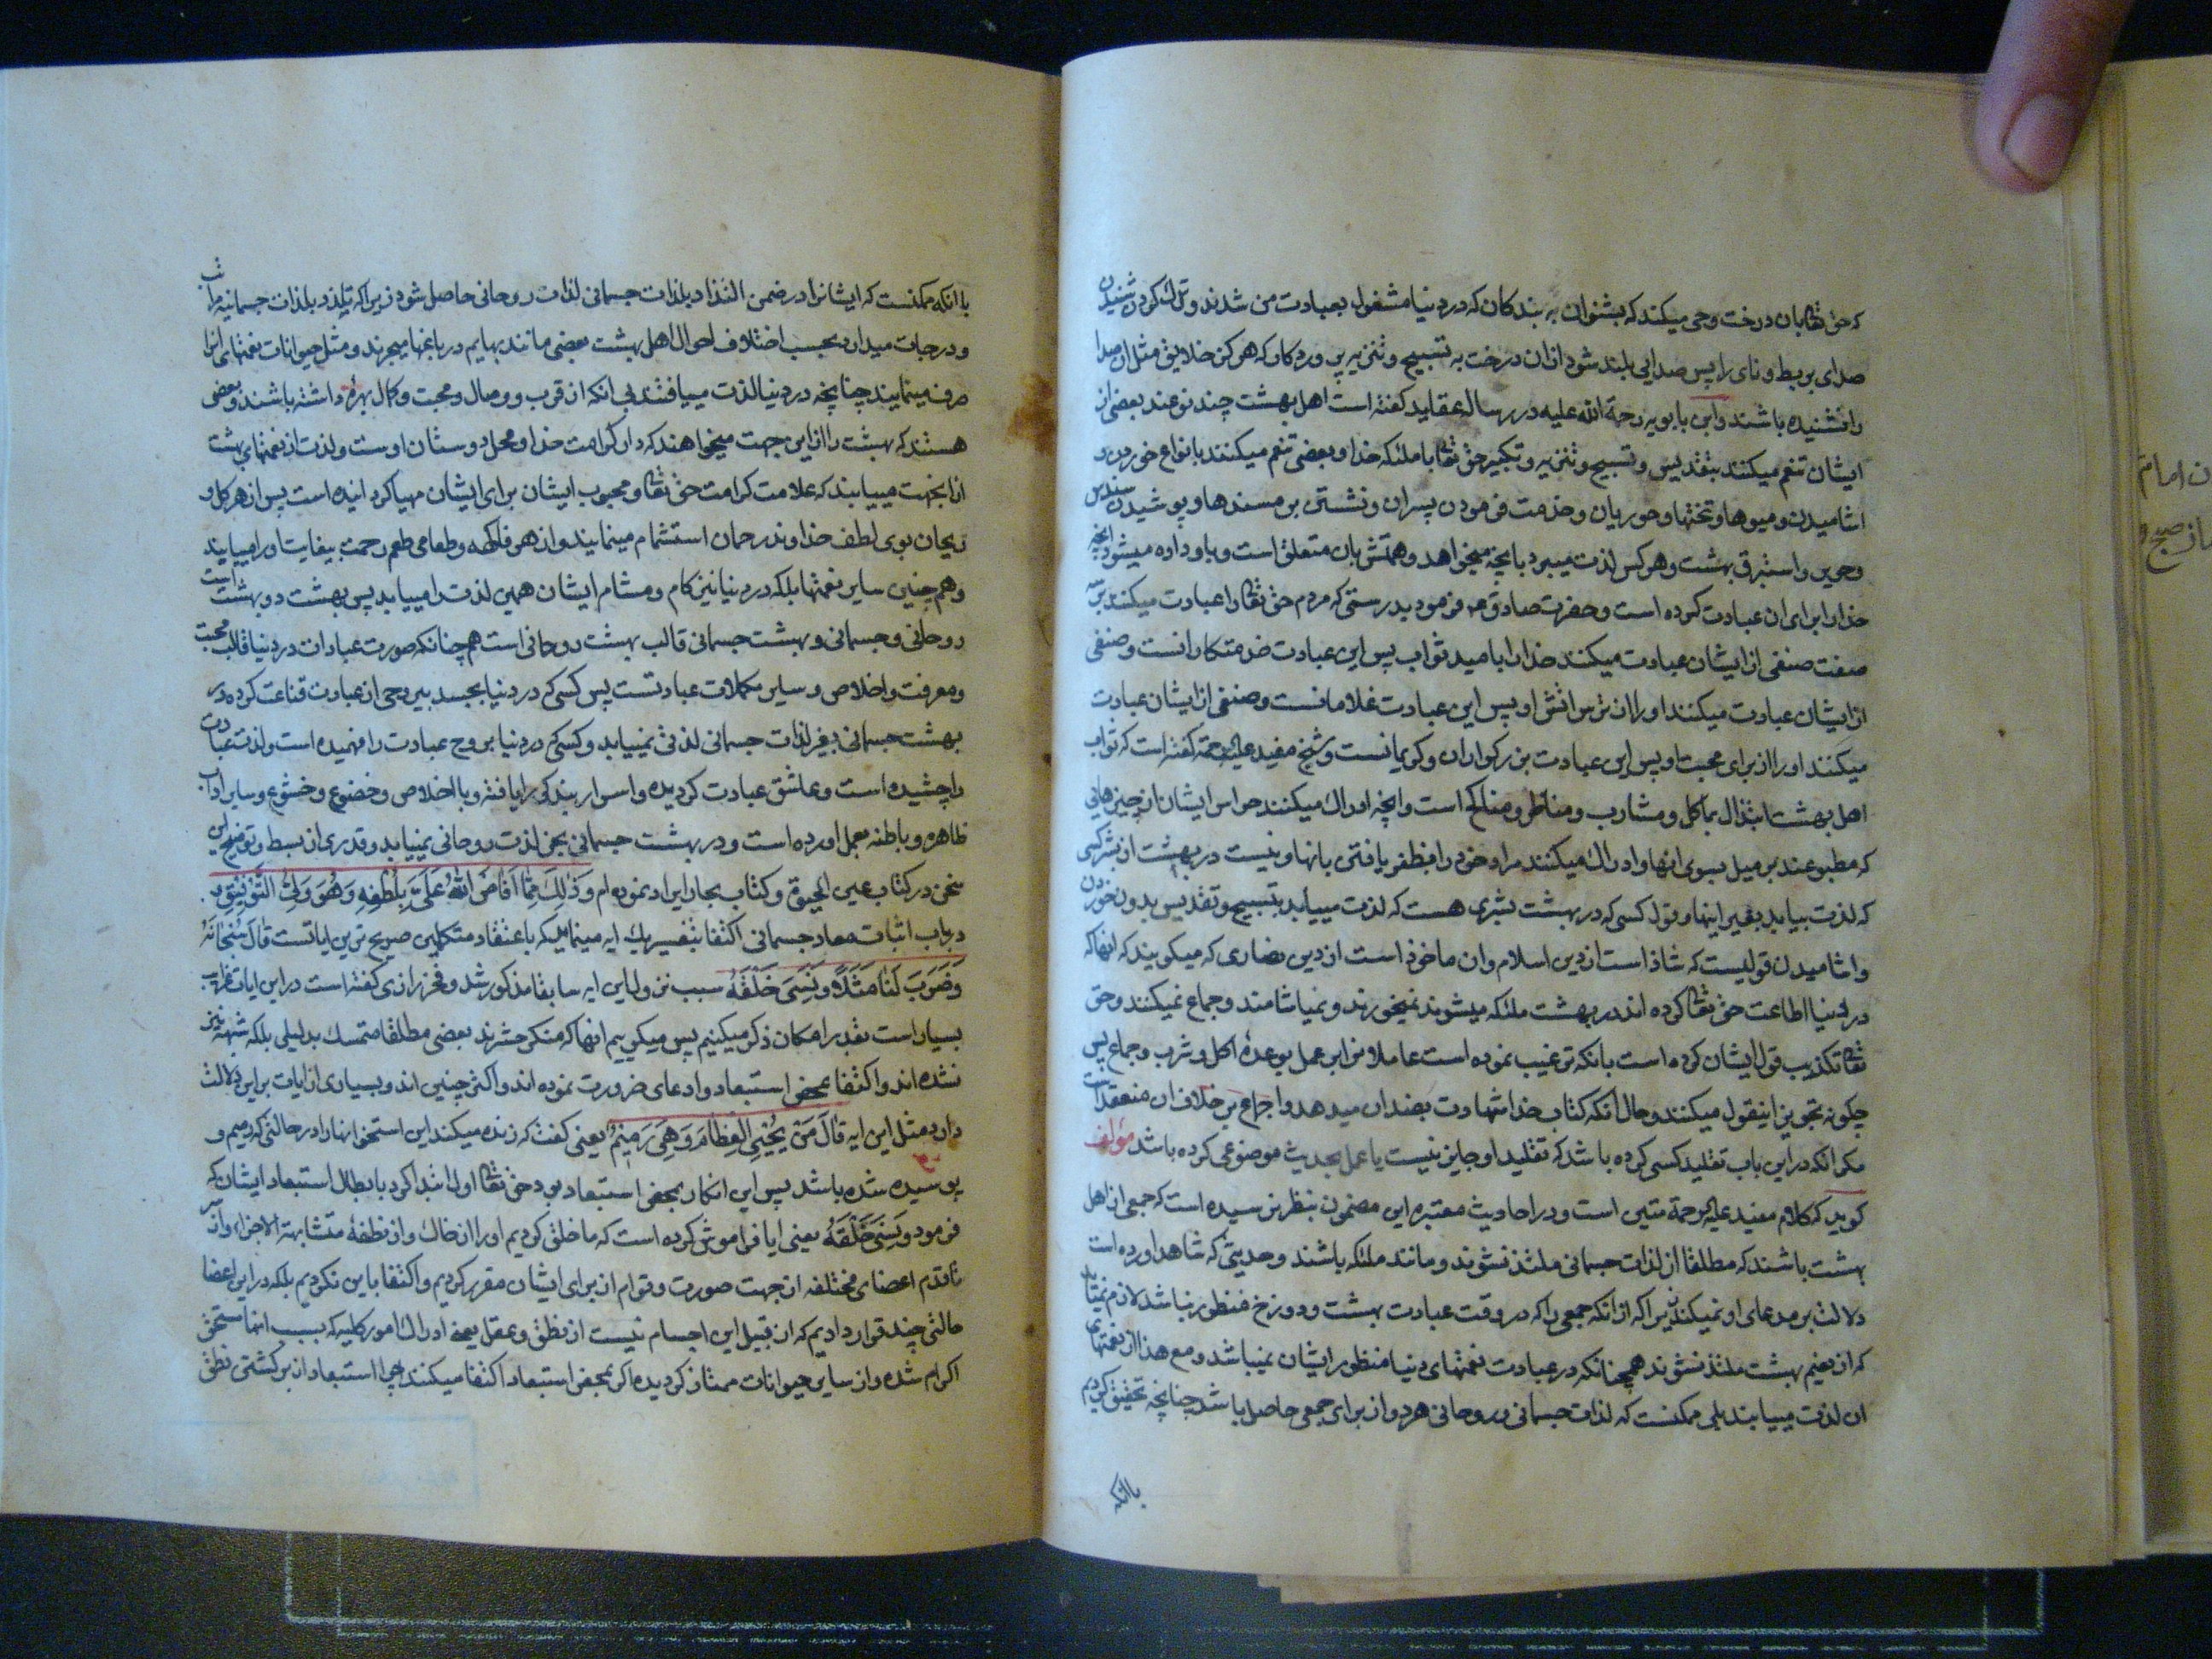 که حق تعالی بان درخت وحی میکند که بشنوان به بندکان که در دنیا مشغول بعبادت من شدند و ترک کردند شنیدن
صدای بربط و نای را پس صدایی بلند شود ازان درخت به تسبیح و تنزیه پروردکار که هرکز خلایق مثل ان صدا
را نشنیده باشند وابن بابویه رحمة الله علیه در رساله عقاید کفته است اهل بهشت چند نوعند بعضی از
ایشان تنعم میکنند بتقدیس و تسبیح و تنزیه و تکبیر حق تعالی با ملئکه خدا و بعضی تنعم میکنند بانواع خوردن و
اشامیدن و میوها و تختها و حوریان و خدمت فرمودن پسران و نشستن بر مسندها و پوشیدن سندس
وحریر و استبرق بهشت و هر کس لذت میبرد بانچه میخواهد و همتش بان متعلق است و باو داده میشود انچه
خدارا برای ان عبادت کرده است و حضرت صادق ع فرمود بدرستی که مردم حق تعالی را عبادت میکنند بر سه
صنف صنفی از ایشان عبادت میکنند خدارا بامید ثواب پس این عبادت خدمتکارانست و صنفی
از ایشان عبادت میکنند اورا از ترس اتش او پس این عبادت غلامانست و صنفی از ایشان عبادت
میکنند اورا از برای محبت او پس این عبادت بزرکواران و کریمانست و شیخ مفید علیه الرحمة کفته است که ثواب
اهل بهشت ابتذال بمآکل و مشارب و مناظر و مناکح است وانچه ادراک میکنند حواس ایشان از چیزهایی
که مطبوعند بر میل بسوی انها و ادراک میکنند مراد خود را بظفر یافتن بانها و نیست در بهشت از بشر کسی
که لذت بیابد بغیر اینها و قول کسی که در بهشت بشری هست که لذت مییابد بتسبیح و تقدیس بدون خوردن
واشامیدن قولیست که شاذ است از دین اسلام وان ماخوذ است از دین نصاری که میکویند که انها که
در دنیا اطاعت حق تعالی کرده اند در بهشت ملئکه میشوند نمیخورند و نمیاشامند و جماع نمیکنند و حق
تعالی تکذیب قول ایشان کرده است بانکه ترغیب نموده است عاملان را بر این عمل بوعدۀ اکل و شرب و جماع پس
چکونه تجویز اینقول میکنند و حال انکه کتاب خدا شهادت بضد ان میدهد و اجماع بر خلاف ان منعقد است
مکر انکه در این باب تقلید کسی کرده باشد که تقلید او جایز نیست یا عمل بحدیث موضوعی کرده باشد مؤلف
کوید که کلام مفید علیه الرحمة متین است و در احادیث معتبره این مضمون بنظر نرسیده است که جمعی از اهل
بهشت باشند که مطلقا از لذات جسمانی ملتذ نشوند و مانند ملئکه باشند و حدیثی که شاهد اورده است
دلالت بر مدعای او نمیکند زیرا که از انکه جمعی را که در وقت عبادت بهشت و دوزخ منظور نباشد لازم نمیاید
که از نعیم بهشت ملتذ نشوند همچنانکه در عبادت نعمتهای دنیا منظور ایشان نمیباشد و مع هذا از نعمتهای
ان لذت مییابند بلی ممکنست که لذات جسمانی و روحانی هر دو از برای جمعی حاصل باشد چنانچه تحقیق کردیم
باانکه
با انکه ممکنست که ایشانرا در ضمن التذاذ بلذات جسمانی لذات روحانی حاصل شود زیرا که تلذذ بلذات جسمانیه مراتب
ودرجات میدارد بحسب اختلاف احوال اهل بهشت بعضی مانند بهایم در باغها میچرند و مثل حیوانات نعمتهای انرا
صرف مینمایند چنانچه در دنیا لذت مییافتند بی انکه از قرب و وصال و محبت و کمال بهرۀ داشته باشند و بعضی
هستند که بهشت را از این جهت میخواهند که دار کرامت خدا و محل دوستان اوست و لذت از نعمتهای بهشت
ازانجهت مییابند که علامت کرامت حق تعالی و محبوب ایشان برای ایشان مهیا کردانیده است پس از هر کل و
ریحان بوی لطف خداوند رحمان استشمام مینمایند و از هر فاکهه و طعامی طعم رحمت بیغایت اورا مییابند
وهم چنین سایر نعمتها بلکه در دنیا نیز کام و مشام ایشان همین لذت را مییابد پس بهشت دو بهشت است
روحانی و جسمانی و بهشت جسمانی قالب بهشت روحانی است هم چنانکه صورت عبادات در دنیا قالب محبت
ومعرفت و اخلاص و سایر مکملات عبادتست پس کسی که در دنیا بجسد بیروحی از عبادت قناعت کرده در
بهشت جسمانی بغیر لذات جسمانی لذتی نمییابد و کسی که در دنیا بروح عبادت را فهمیده است و لذت عبادت
را چشیده است و عاشق عبادت کردیده و اسرار بندکی را یافته و با اخلاص و خضوع و خشوع و سایر اداب
ظاهره و باطنه بعمل اورده است و در بهشت جسمانی بجز لذت روحانی نمییابد و قدری از بسط و توضیح این
سخن در کتاب عین الحیوة و کتاب بحار ایراد نموده ام وَذٰلِكَ مِمَّا اَفَاضَ اللّٰهُ عَلَیَّ بِلُطْفِهِ وَهُوَ وَلِیُّ التَّوْفِیْقِ
در باب اثبات معاد جسمانی اکتفا بتفسیر یک ایه مینمایم که باعتقاد متکلمین صریح ترین ایاتست قَالَ سُبْحَانَهُ
وَضَرَبَ لَنَا مَثَلاً وَنَسِیَ خَلْقَهُ سبب نزول این ایه سابقا مذکور شد و فخر رازی کفته است در این ایات غرایب
بسیار است بقدر امکان ذکر میکنیم پس میکوییم انها که منکر حشرند بعضی مطلقا متمسک بدلیلی بلکه شبهه نیز
نشده اند و اکتفا بمحض استبعاد و ادعای ضرورت نموده اند و اکثر چنین اند و بسیاری از ایات بر این دلالت
دارد مثل این ایه قَالَ مَنْ یُحْیِی الْعِظَامَ وَهِیَ رَمِیْمٌ یعنی کفت که زنده میکند این استخوانها را در حالتی که رمیم و
پوسیده شده باشد پس این انکار بمحض استبعاد بود حق تعالی اول ابتدا کرد بابطال استبعاد ایشان که
فرمود وَنَسِیَ خَلْقَهُ یعنی ایا فراموش کرده است که ما خلق کردیم اورا از خاک و از نطفۀ متشابهة الاجزا و از سر
تا قدم اعضای مختلفه از جهت صورت و قوام از برای ایشان مقرر کردیم و اکتفا باین نکردیم بلکه در این اعضا
حالتی چند قرار دادیم که از قبیل این اجسام نیست از نطق و عقل یعنی ادراک امور کلیه که بسبب انها مستحق
اکرام شده و از سایر حیوانات ممتاز کردیده اکر بمحض استبعاد اکتفا میکنند چرا استبعاد از برکشتن نطق